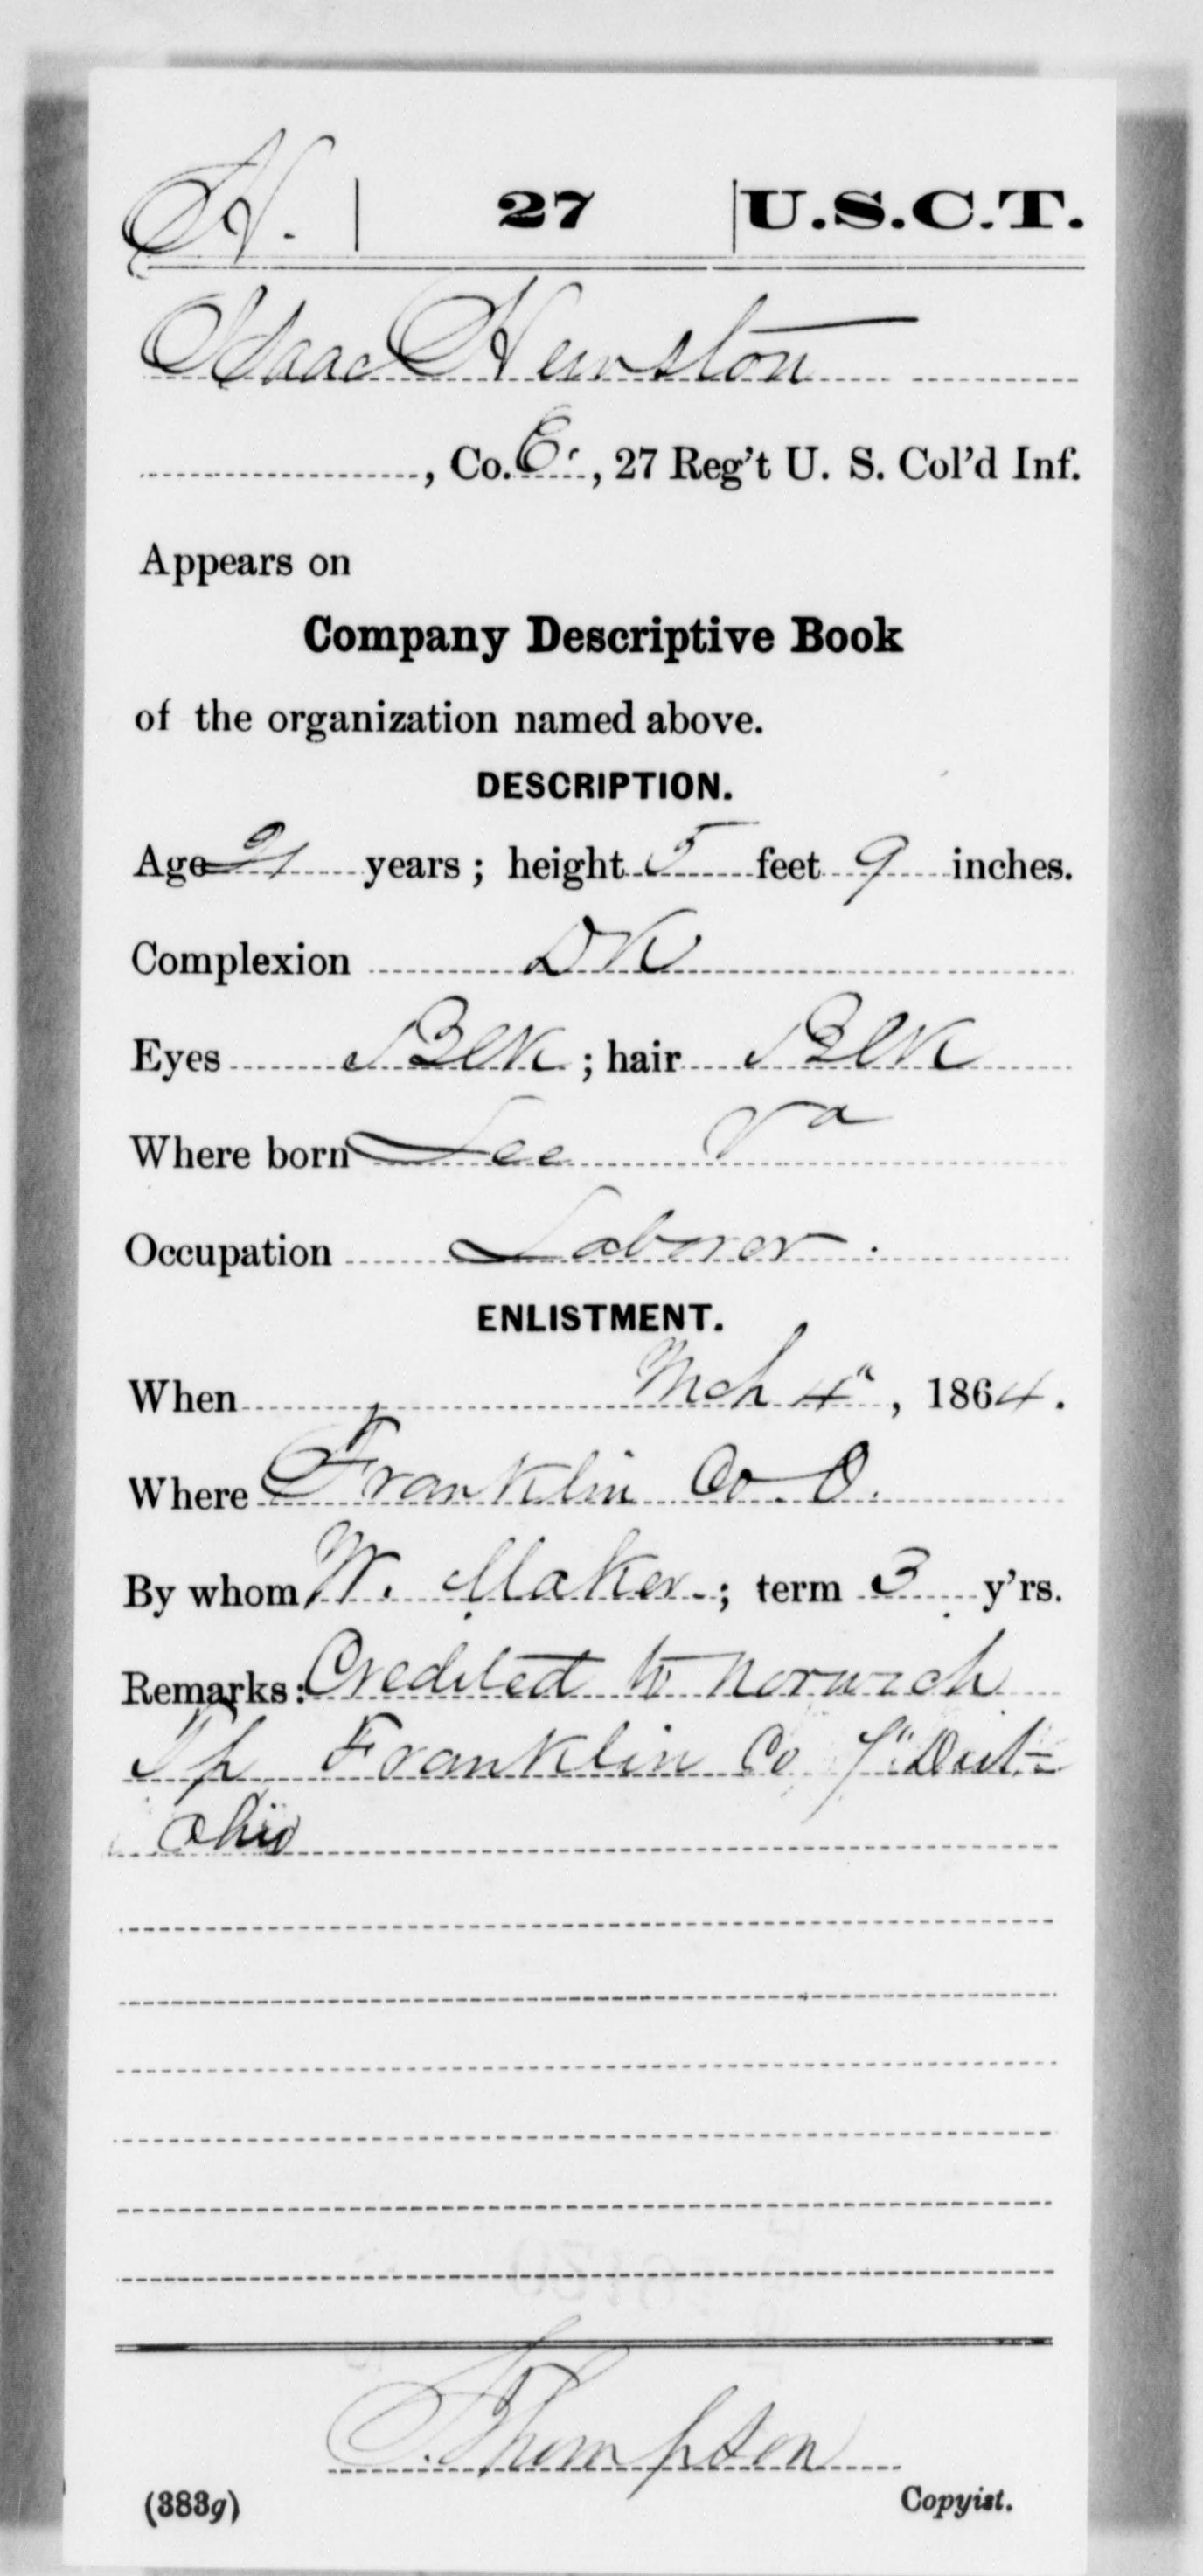 H. | 27 | U.S.C.T.
Isaac Hewston
, Co. E., 27 Reg't U. S. Col'd Inf.
Appears on
Company Descriptive Book
of the organization named above.
DESCRIPTION.
Age 21 years; height 5 feet 9 inches.
Complexion DK
Eyes Blk; hair Blk
Where born Lee Va
Occupation Laborer.
ENLISTMENT.
When Mch 4", 1864.
Where Franklin Co. O.
By whom W. Maker; term 3 y'rs.
Remarks: Credited to Norwich
Tp Franklin Co 7" Dist-
Ohio
Thompson
(383g) Copyist.